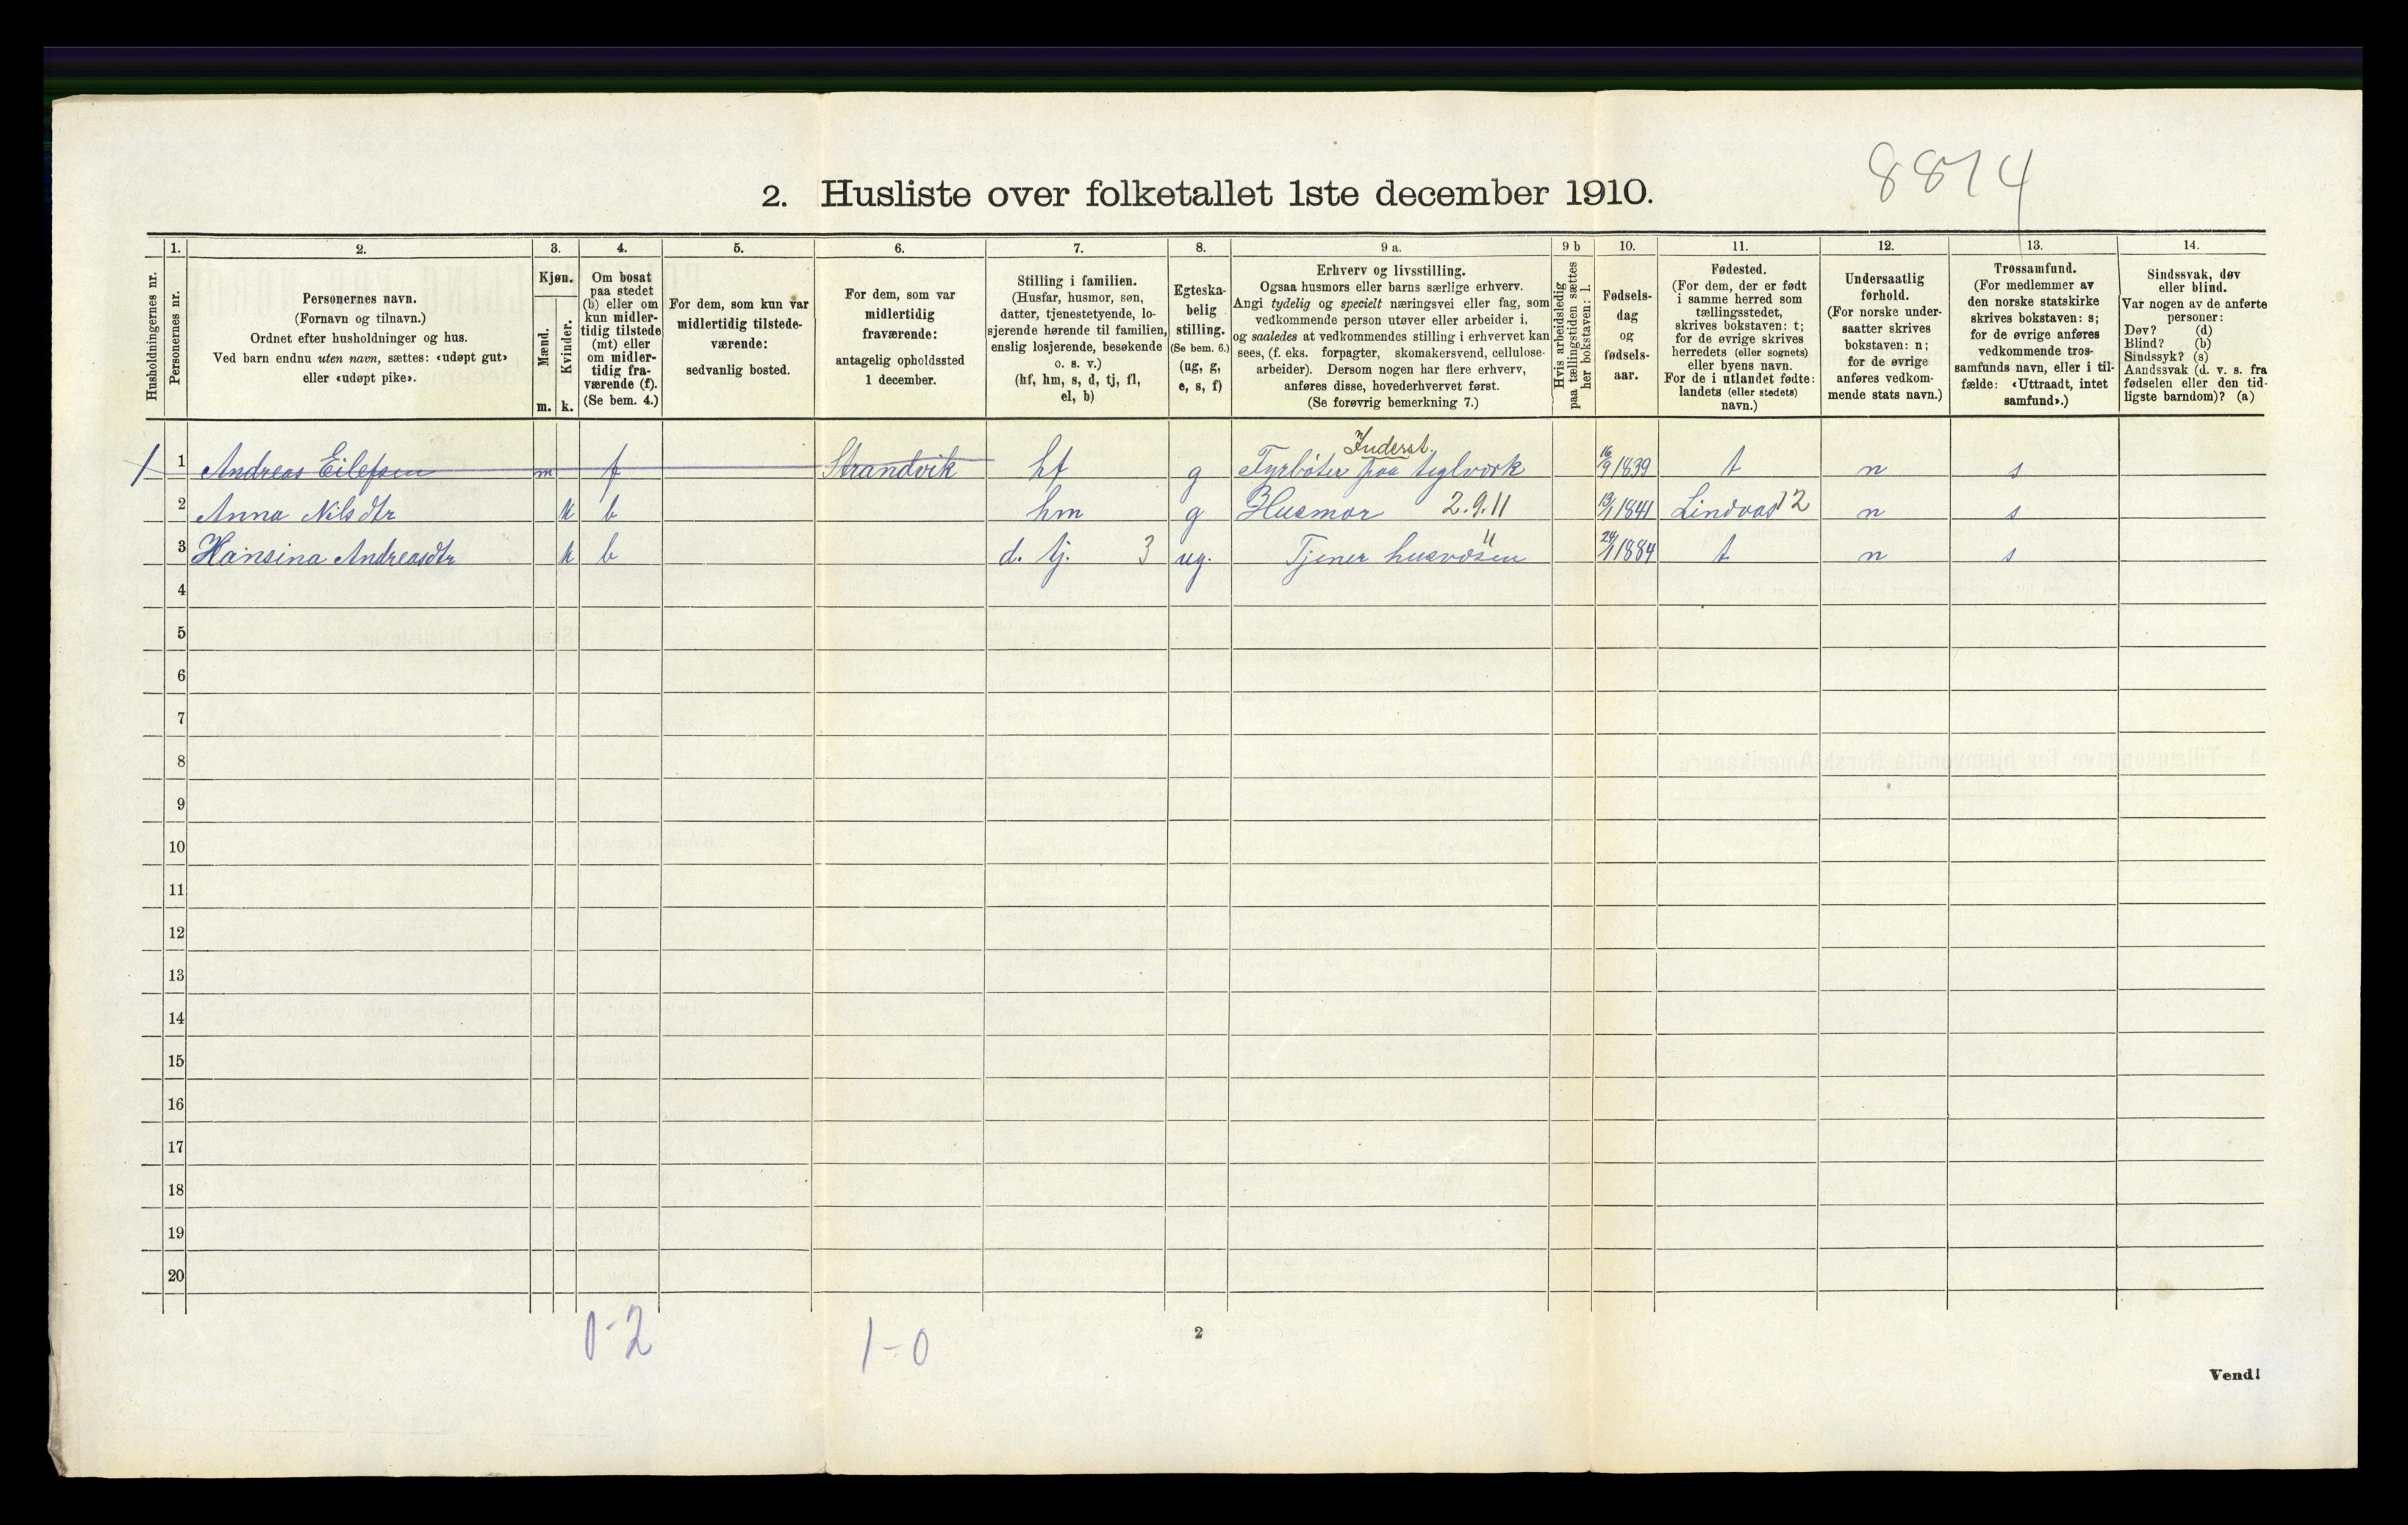 8814
2. Husliste over folketallet 1ste december 1910.
Husholdningernes nr.
1.
Personernes nr.
2.
Personernes navn.
(Fornavn og tilnavn.)
Ordnet efter husholdninger og hus.
Ved barn endnu uten navn, sættes: «udøpt gut»
eller «udøpt pike».
3.
Kjøn.
Mænd.
m.
Kvinder.
k.
4.
Om bosat
paa stedet
(b) eller om
kun midler-
tidig tilstede
(mt) eller
om midler-
tidig fra-
værende (f).
(Se bem. 4.)
5.
For dem, som kun var
midlertidig tilstede-
værende:
sedvanlig bosted.
6.
For dem, som var
midlertidig
fraværende:
antagelig opholdssted
1 december.
7.
Stilling i familien.
(Husfar, husmor, søn,
datter, tjenestetyende, lo-
sjerende hørende til familien,
enslig losjerende, besøkende
o. s. v.)
(hf, hm, s, d, tj, fl,
el, b)
8.
Egteska-
belig
stilling.
(Se bem. 6.)
(ug, g,
e, s, f)
9 a.
Erhverv og livsstilling.
Ogsaa husmors eller barns særlige erhverv.
Angi tydelig og specielt næringsvei eller fag, som
vedkommende person utøver eller arbeider i,
og saaledes at vedkommendes stilling i erhvervet kan
sees, (f. eks. forpagter, skomakersvend, cellulose-
arbeider). Dersom nogen har flere erhverv,
anføres disse, hovederhvervet først.
(Se forøvrig bemerkning 7.)
9 b
Hvis arbeidsledig
paa tællingstiden sættes
her bokstaven: l.
10.
Fødsels-
dag
og
fødsels-
aar.
11.
Fødested.
(For dem, der er født
i samme herred som
tællingsstedet,
skrives bokstaven: t;
for de øvrige skrives
herredets (eller sognets)
eller byens navn.
For de i utlandet fødte:
landets (eller stedets)
navn.)
12.
Undersaatlig
forhold.
(For norske under-
saatter skrives
bokstaven: n;
for de øvrige
anføres vedkom-
mende stats navn.)
13.
Trossamfund.
(For medlemmer av
den norske statskirke
skrives bokstaven: s;
for de øvrige anføres
vedkommende tros-
samfunds navn, eller i til-
fælde: «Uttraadt, intet
samfund».)
14.
Sindssvak, døv
eller blind.
Var nogen av de anførte
personer:
Døv? (d)
Blind? (b)
Sindssyk? (s)
Aandssvak (d. v. s. fra
fødselen eller den tid-
ligste barndom)? (a)
Inderst.
1 1 Andreas Eilefsen m f Strandvik hf g Fyrbøter paa teglverk 16/9 1839 t n s
2 Anna Nilsdtr k b hm g Husmor 2.9.11 1841 12 n s
3 Hansina Andreasdtr k b d. tj. 3 ug. Tjener husvæsen " 1884 t n s
4
5
6
7
8
9
10
11
12
13
14
15
16
17
18
19
20
0-2 1-0
2
Vend!